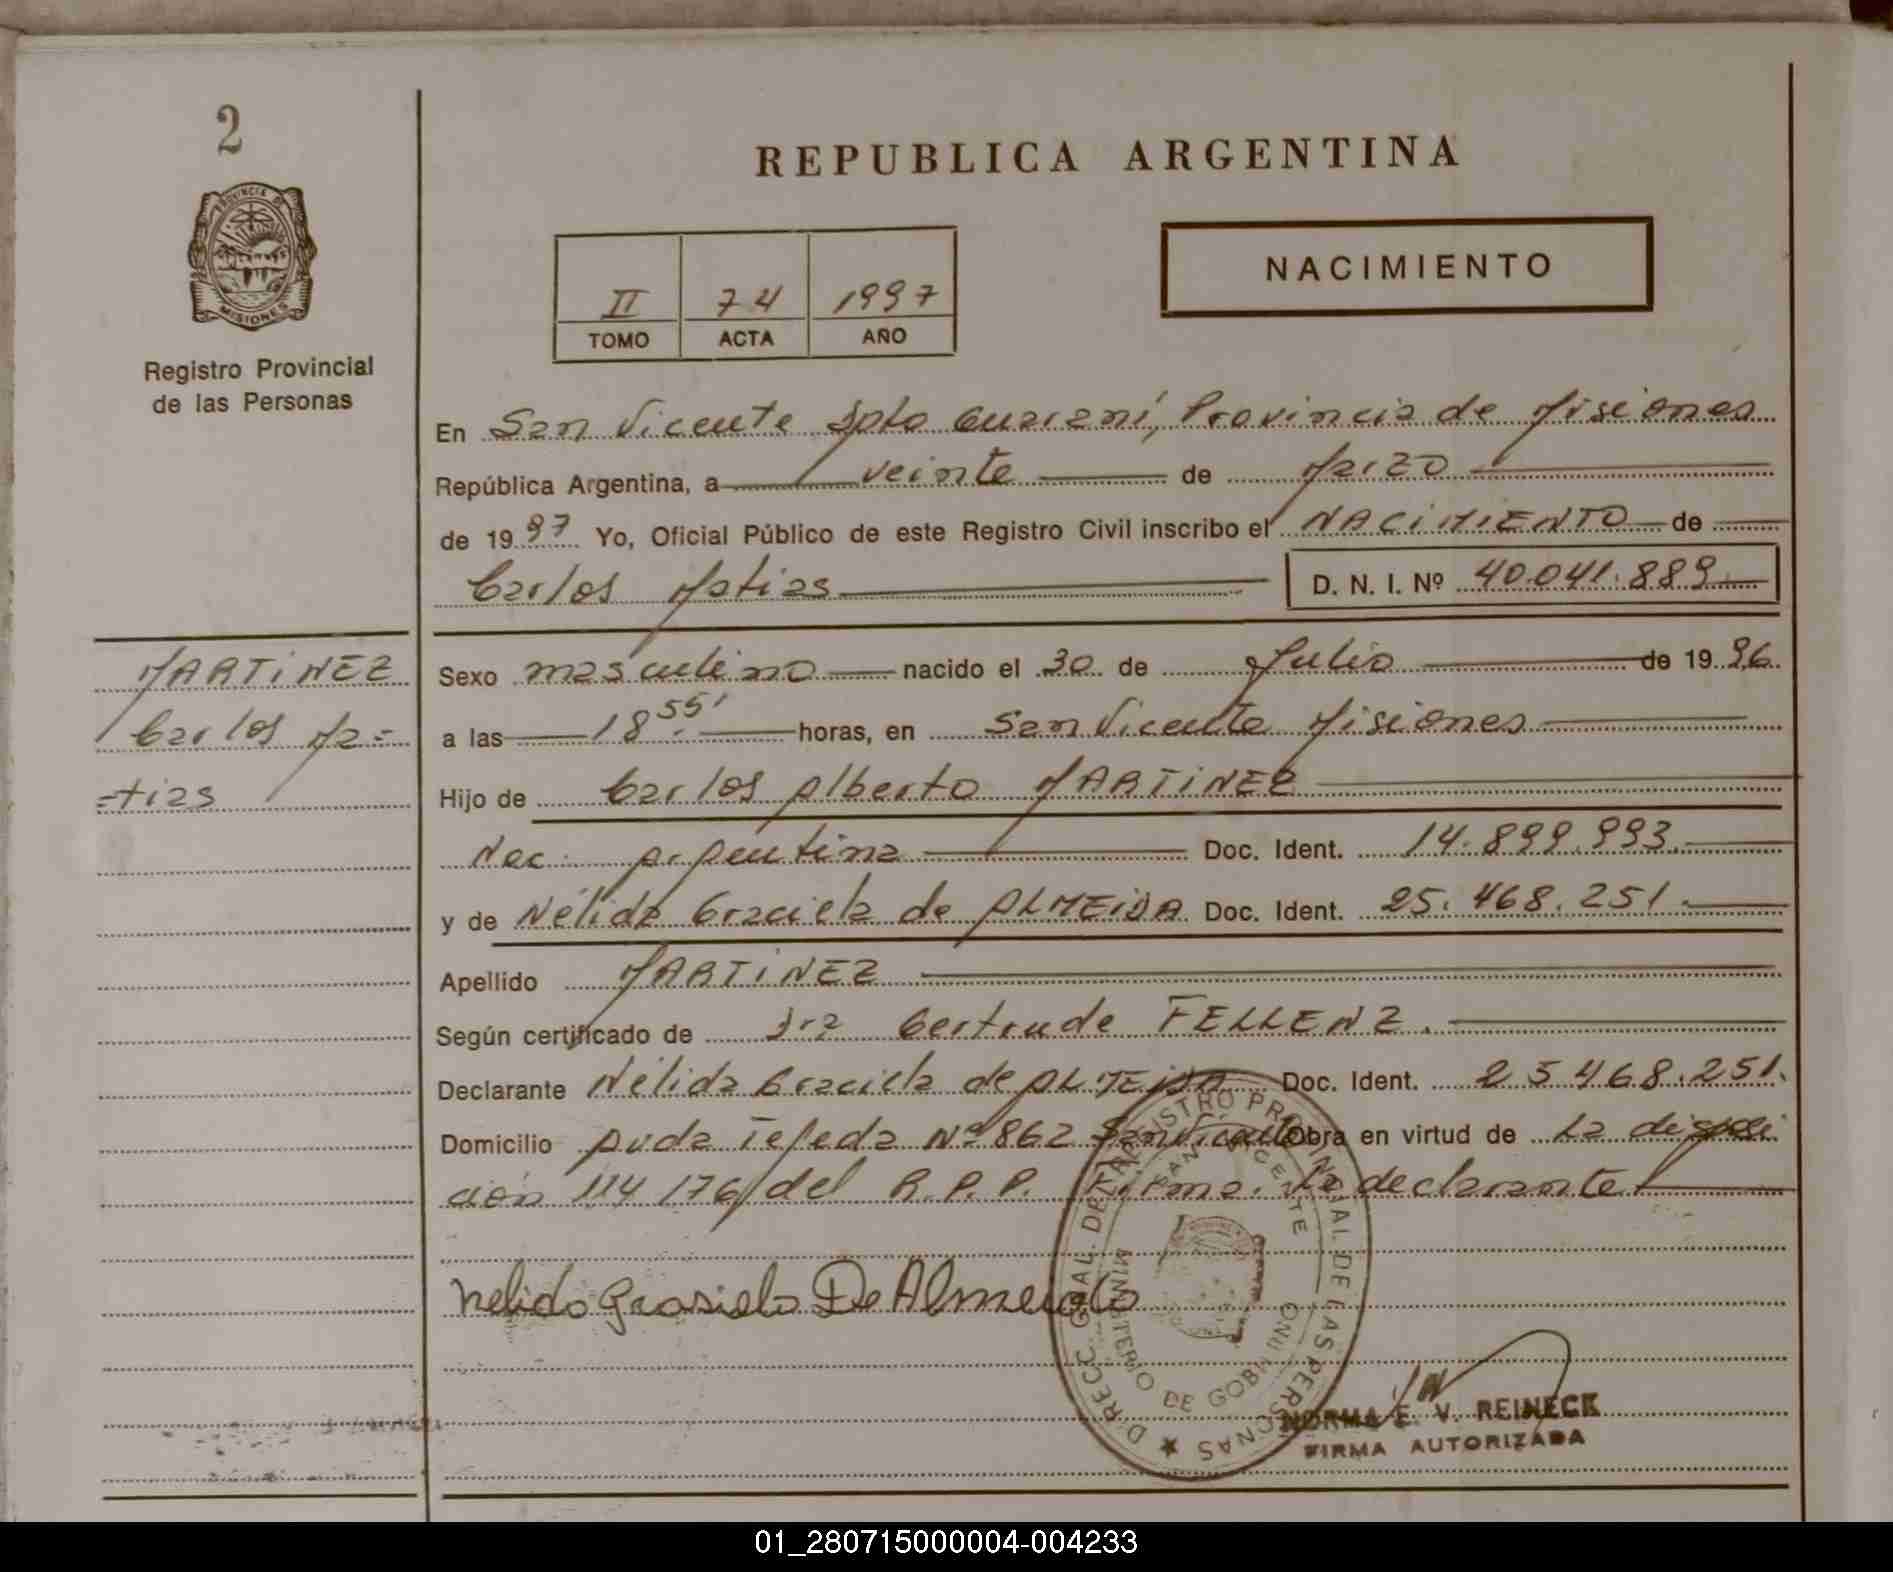 2
REPUBLICA ARGENTINA
PROVINCIA DE
MISIONES
Registro Provincial
de las Personas
II 74 1997
TOMO ACTA AÑO
NACIMIENTO
En San Vicente Dpto Guaraní, Provincia de Misiones
República Argentina, a veinte de Marzo
de 1997 Yo, Oficial Público de este Registro Civil inscribo el NACIMIENTO de
Carlos Matias D. N. I. Nº 40.041.889
MARTINEZ
Carlos Ma=
=tias
Sexo masculino nacido el 30 de Julio de 1996
a las 18.55' horas, en San Vicente Misiones
Hijo de Carlos Alberto MARTINEZ
Nac. Argentina Doc. Ident. 14.899.993.
y de Nélida Graciela de ALMEIDA Doc. Ident. 25.468.251.
Apellido MARTINEZ
Según certificado de Dra Gertrude FELLENZ.
Declarante Nélida Graciela de ALMEIDA Doc. Ident. 25468.251.
Domicilio Avda Tejeda Nº 862 San Vicente Obra en virtud de La disposi
ción 114/76 del R.P.P. Firma: La declarante
Nelida Grasiela De Almeida
DIRECC. GRAL. DEL REGISTRO PROVINCIAL DE LAS PERSONAS
SAN VICENTE
MINISTERIO DE GOBIERNO
NORMA E. V. REINECK
FIRMA AUTORIZADA
01_280715000004-004233